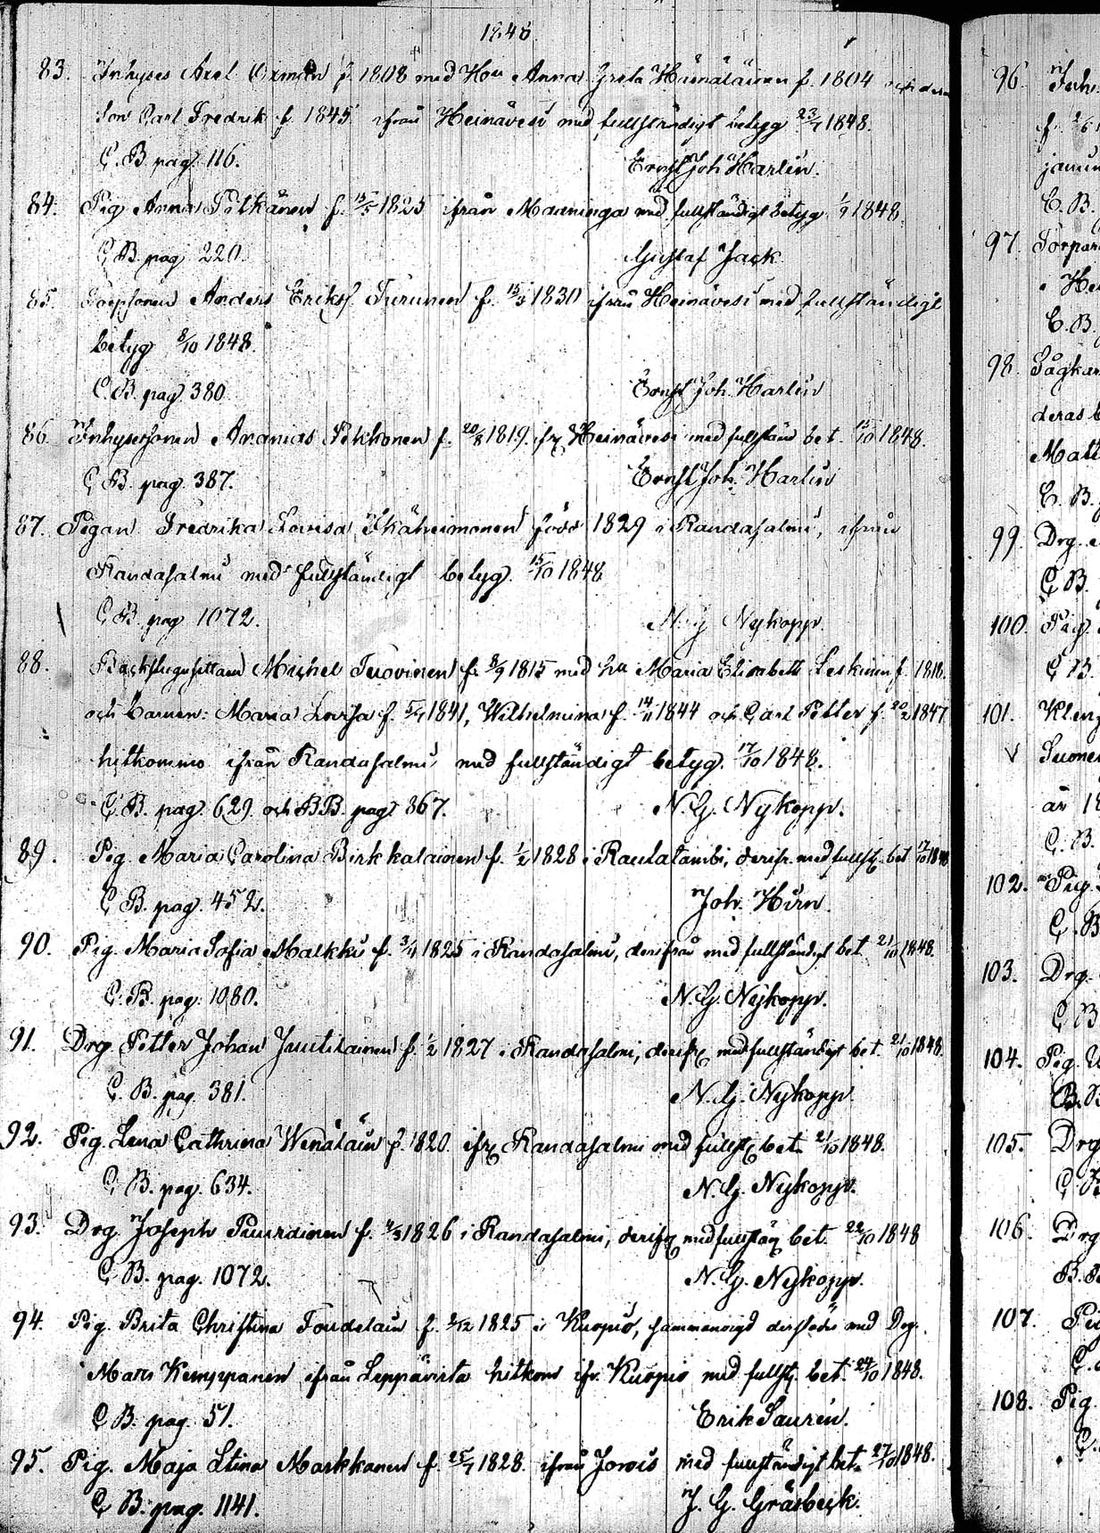 1848.
83. Inhyses Axel Oxman f. 1808 med Hu Anna Greta Hämäläinen f. 1804 och deras
Son Carl Fredrik f. 1845 ifrån Heinävesi med fullständigt betyg 23/7 1848.
C. B. pag. 116. Ernst Joh Harlin.
84. Pig. Anna Pitkänen f. 15/5 1825 ifrån Maaninga med fullständigt betyg 1/9 1848.
C. B. pag 220. Gustaf Jack
85. Anders Eriksf. Turunen f. 15/3 1830 ifrån Heinävesi med fullständigt
betyg 8/10 1848.
C. B. pag. 380 Ernst Joh. Harlin
86. Inhysesonen Ananias Pekkonen f. 20/8 1819. ifr Heinävesi med fullstän bet. 15/10 1848.
C. B. pag. 387. Ernst Joh. Harlin
87. Pigan Fredrika Lovisa Ikäheimonen född 1829 i Randasalmi, ifrån
Randasalmi med fullständigt betyg. 15/10 1848
C. B. pag 1072. N. G Nykopp.
88. Backstugusittaren Michel Tuovinen f. 8/9 1815 med hu Maria Elisabeth Leskinen f. 1818.
och barnen: Maria Lovisa f. 5/4 1841, Wilhelmina f. 14/11 1844 och Carl Petter f. 20/2 1847
hitkommo ifrån Randasalmi med fullständigt betyg. 17/10 1848.
C. B. pag. 629. och B.B. pag. 867. N. G. Nykopp.
89. Pig. Maria Carolina Birkkalainen f. 1/2 1828 i Rautalambi, derifr. med fullst. bet. 17/10 1848
C. B. pag. 452. Joh. Hirn.
90. Pig. Maria Sofia Malkki f. 3/4 1825 i Randasalmi, derifrån med fullständigt bet. 21/10 1848.
C. B. pag. 1080. N. G. Nykopp.
91. Drg. Petter Johan Jantikainen f. 1/2 1827 i Randasalmi, derifr. med fullständigt bet. 21/10 1848.
C. B. pag. 381. N. G. Nykopp
92. Pig. Lena Cathrina Wenäläin f. 1820. ifr Randasalmi med fullst. bet. 21/10 1848.
C. B. pag. 634. N. G. Nykopp.
93. Drg. Joseph f. 4/3 1826 i Randasalmi, derifr. med fullstän bet. 22/10 1848
C. B. pag. 1072. N. G. Nykopp.
94. Pig. Brita Christina f. 2/12 1825 i Kuopio, sammanvigd derstädes med Drg.
Mats Kemppanen ifrån Leppävirta hitkom ifr. Kuopio med fullst. bet. 24/10 1848.
C. B. pag. 51. Erik Saurén.
95. Pig. Maja Stina Markkanen f. 25/7 1828. ifrån Jorois med fullständigt bet. 27/10 1848.
C. B. pag. 1141. J. G. Gråsbeck.
96. Inh.
f. 2/6
C. B.
97. Torpar
i He
C. B.
98.
deras b
Matt
C. B.
99. Drg.
C. B.
100. Pig.
C. B.
101.
Suomen
år 18
C. B.
102. Pig.
C. B
103. Drg.
C. B
104. Pig.
B. B
105. Drg
C. B
106. Drg
B. B
107. Pig
C.
108. Pig.
C.